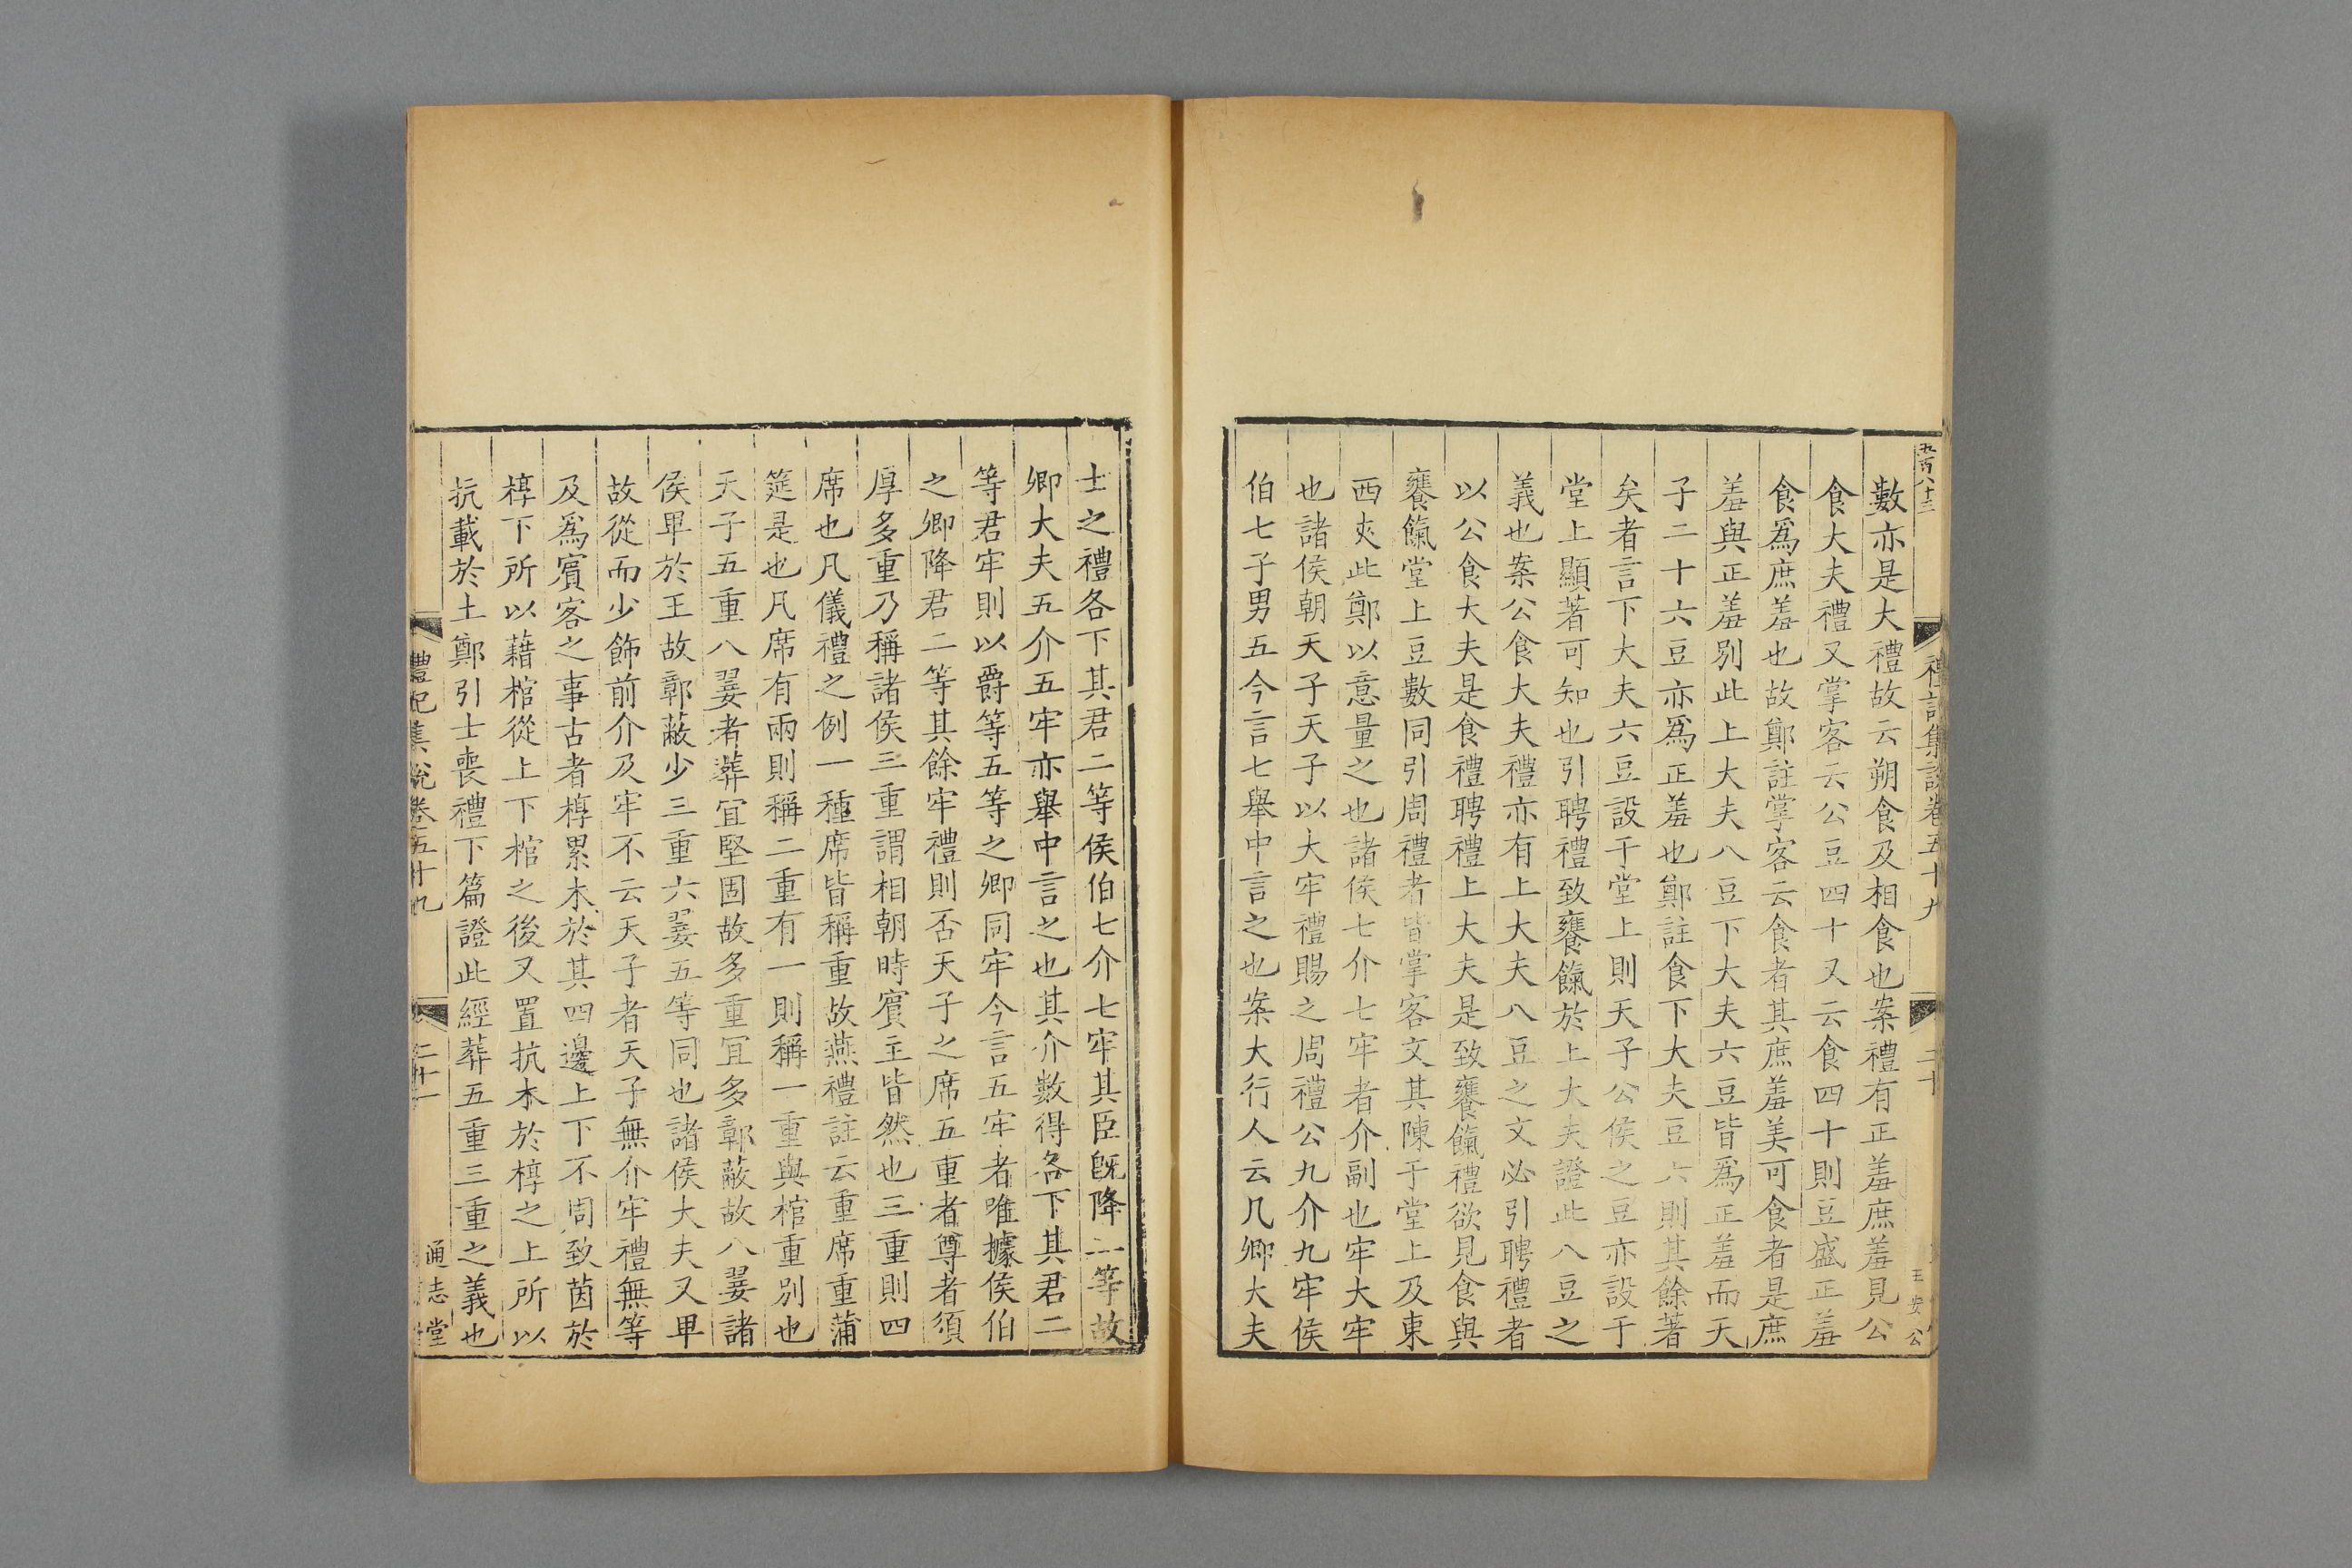 五百八十三
禮記集說卷五十九
二十
王安公
數亦是大禮故云朔食及相食也案禮有正羞庶羞見公
食大夫禮又掌客云公豆四十又云食四十則豆盛正羞
食爲庶羞也故鄭註掌客云食者其庶羞美可食者是庶
羞與正羞别此上大夫八豆下大夫六豆皆爲正羞而天
子二十六豆亦爲正羞也鄭註食下大夫豆六則其餘著
矣者言下大夫六豆設于堂上則天子公侯之豆亦設于
堂上顯著可知也引聘禮致饔餼於上大夫證此八豆之
義也案公食大夫禮亦有上大夫八豆之文必引聘禮者
以公食大夫是食禮聘禮上大夫是致饔餼禮欲見食與
饔餼堂上豆數同引周禮者皆掌客文其陳于堂上及東
西夾此鄭以意量之也諸侯七介七牢者介副也牢大牢
也諸侯朝天子天子以大牢禮賜之周禮公九介九牢侯
伯七子男五今言七舉中言之也案大行人云凡卿大夫
士之禮各下其君二等侯伯七介七牢其臣旣降二等故
卿大夫五介五牢亦舉中言之也其介數得各下其君二
等君牢則以爵等五等之卿同牢今言五牢者唯據侯伯
之卿降君二等其餘牢禮則否天子之席五重者尊者須
厚多重乃稱諸侯三重謂相朝時賓主皆然也三重則四
席也凡儀禮之例一種席皆稱重故燕禮註云重席重蒲
筵是也凡席有兩則稱二重有一則稱一重與棺重别也
天子五重八翣者葬宜堅固故多重冝多鄣蔽故八翣諸
侯畢於王故鄣蔽少三重六翣五等同也諸侯大夫又卑
故從而少飾前介及牢不云天子者天子無介牢禮無等
及爲賓客之事古者椁累木於其四邊上下不周致茵於
椁下所以藉棺從上下棺之後又置抗木於椁之上所以
抗載於土鄭引士喪禮下篇證此經葬五重三重之義也
禮記集說卷五十九
二十一
通志堂